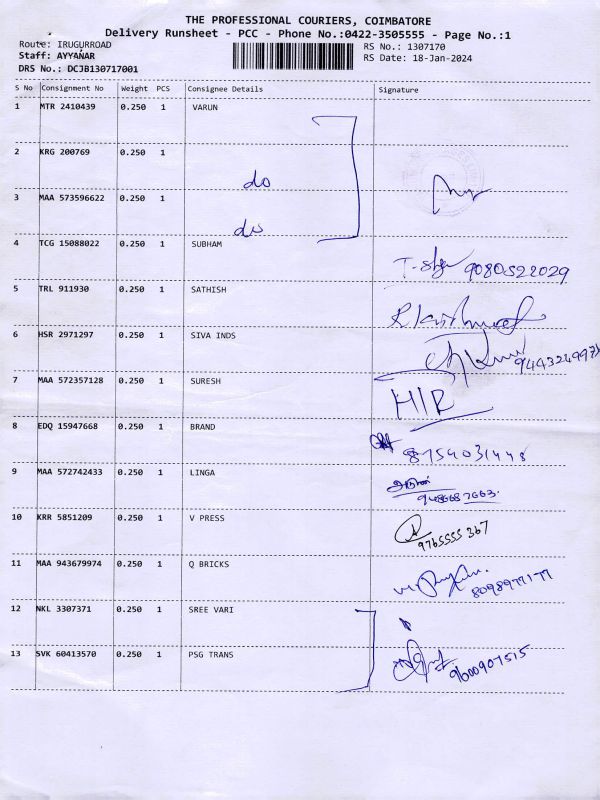 THE PROFESSIONAL COURIERS, COIMBATORE
Delivery Runsheet - PCC - Phone No.:0422-3505555 - Page No.:1
Route: IRUGURROAD RS No.: 1307170
Staff: AYYANAR RS Date: 18-Jan-2024
DRS No.: DCJB130717001
S No Consignment No Weight PCS Consignee Details Signature
1 MTR 2410439 0.250 1 VARUN
2 KRG 200769 0.250 1
do
3 MAA 573596622 0.250 1
do
4 TCG 15088022 0.250 1 SUBHAM
9080522029
5 TRL 911930 0.250 1 SATHISH
6 HSR 2971297 0.250 1 SIVA INDS
7 MAA 572357128 0.250 1 SURESH
H/R
8 EDQ 15947668 0.250 1 BRAND
8754031448
9 MAA 572742433 0.250 1 LINGA
10 KRR 5851209 0.250 1 V PRESS
9765555367
11 MAA 943679974 0.250 1 Q BRICKS
12 NKL 3307371 0.250 1 SREE VARI
13 SVK 60413570 0.250 1 PSG TRANS
9600907515